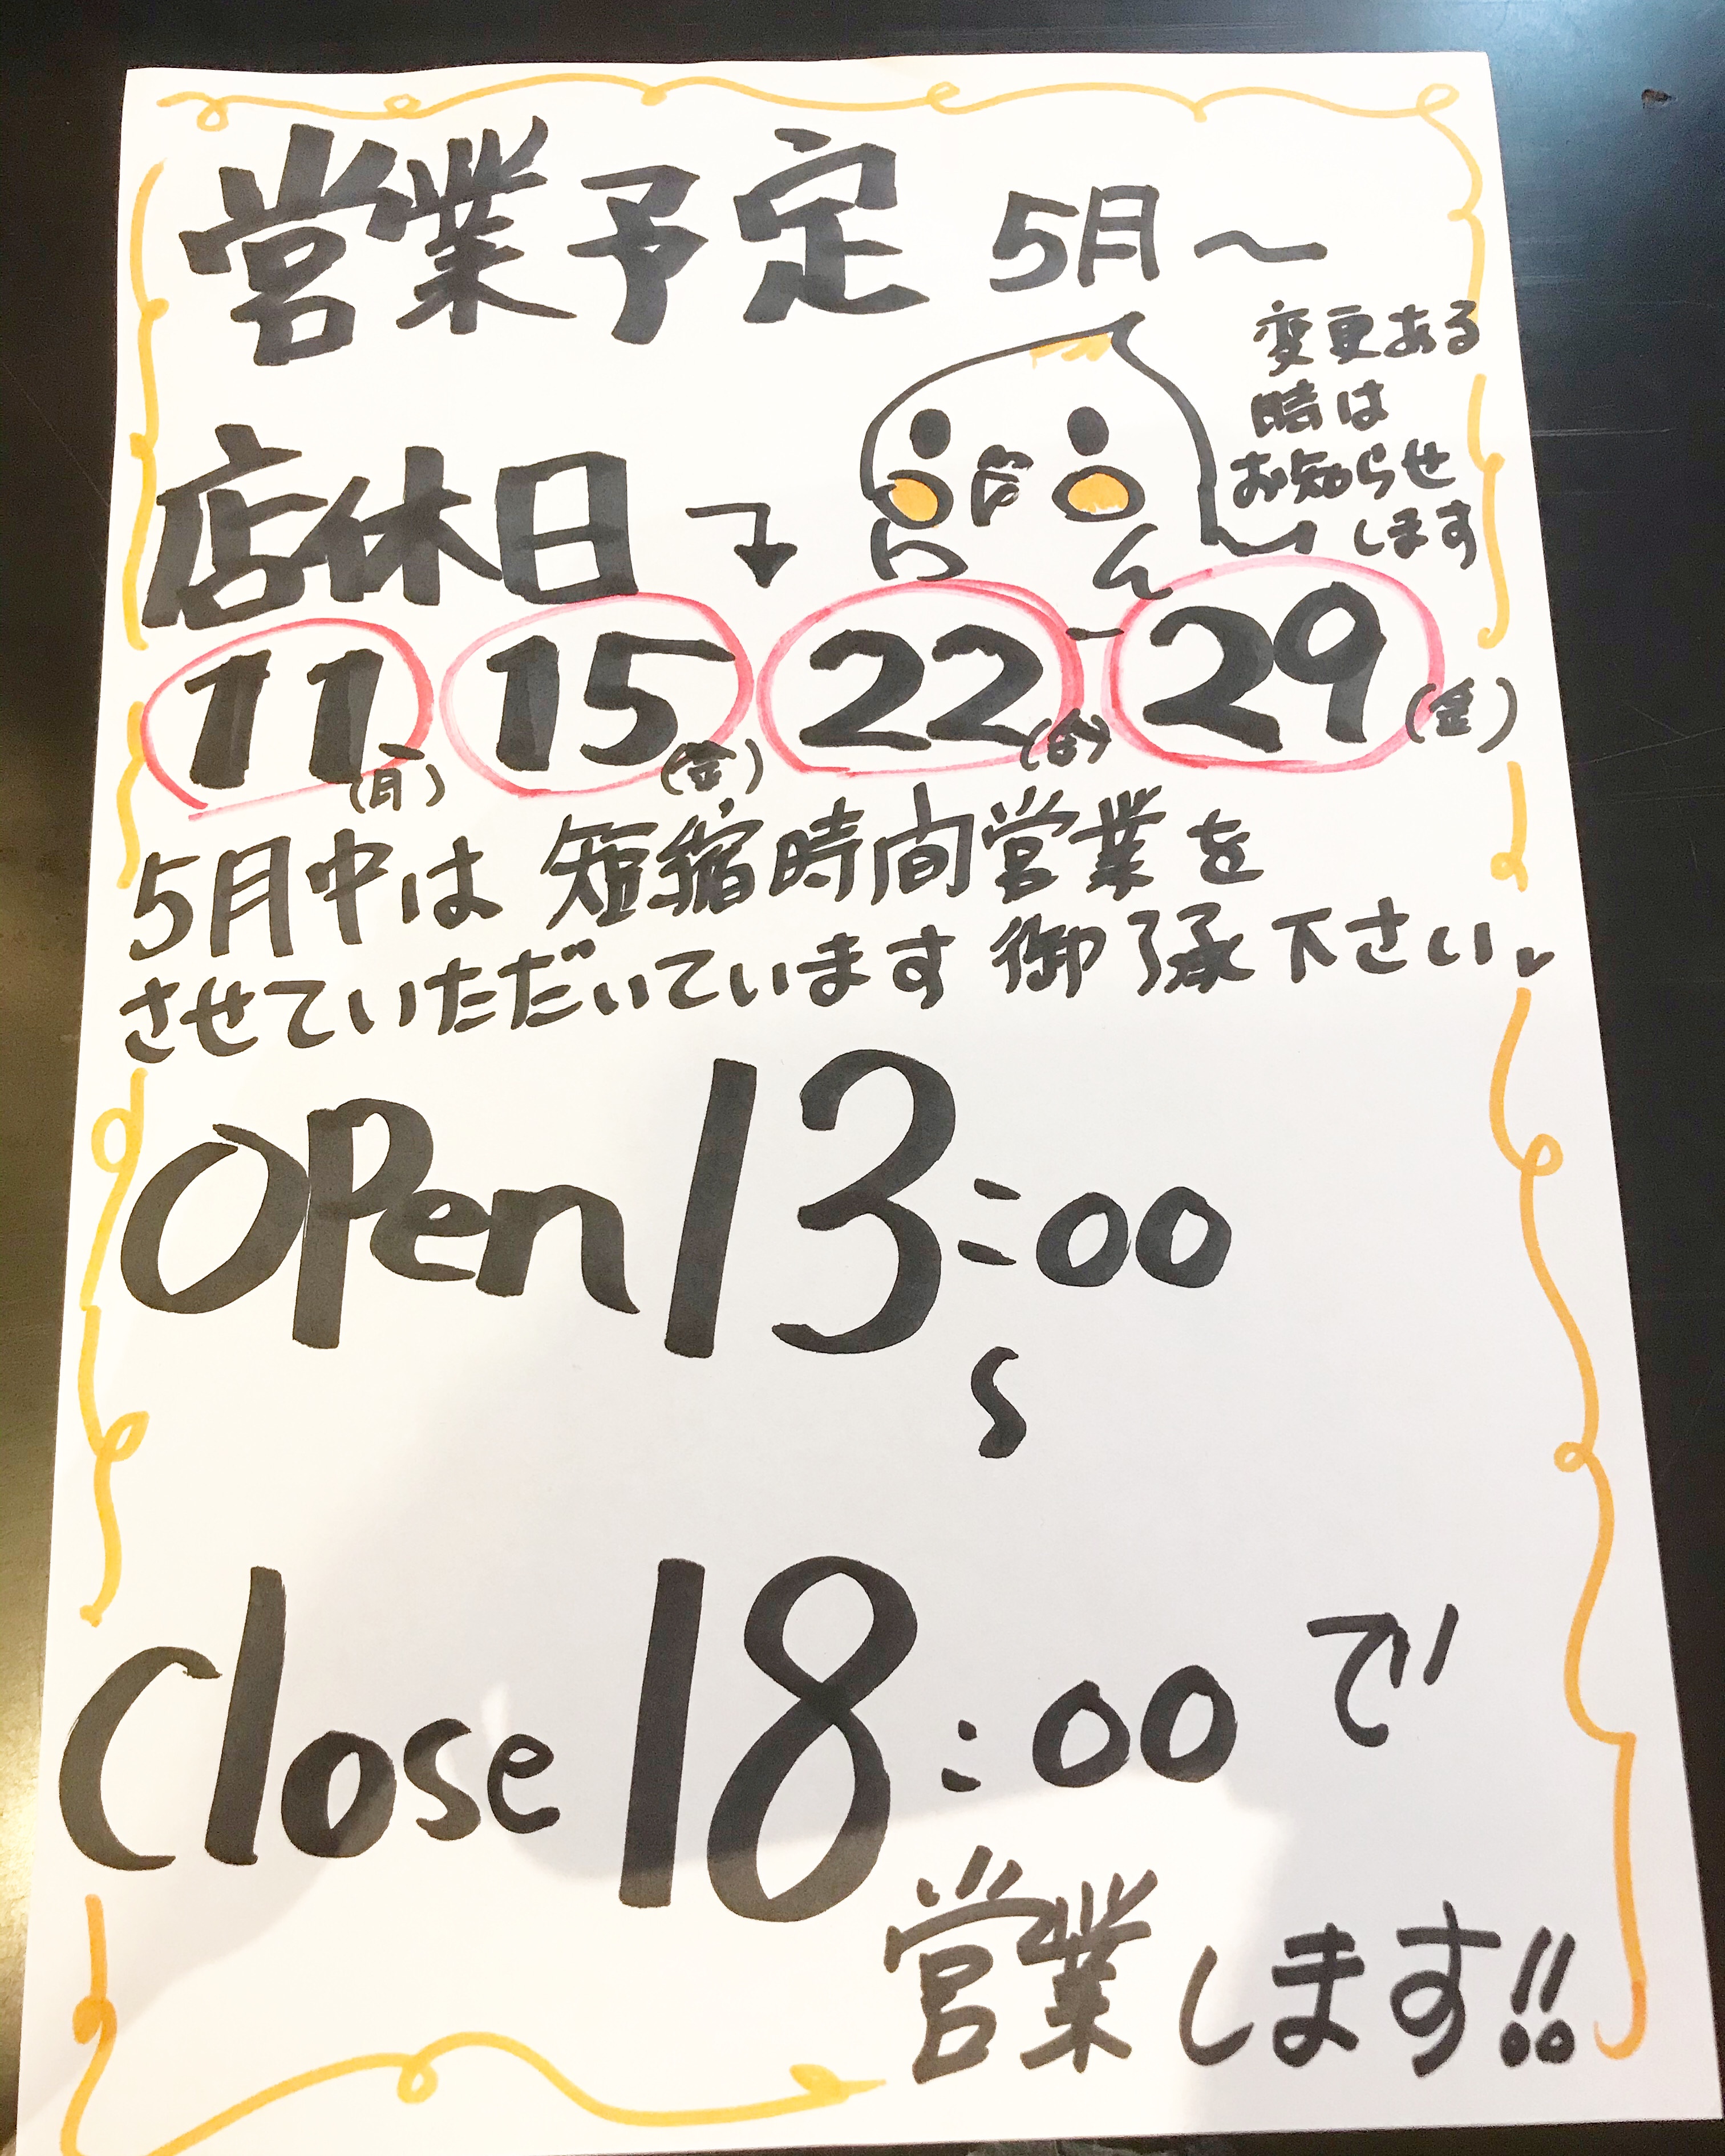 営業予定 5月〜
変更ある
時は
お知らせ
します
店休日
11(月) 15(金) 22(金) 29(金)
5月中は 短縮時間営業を
させていただいています 御了承下さい
open 13:00
〜
Close 18:00 で
営業します!!